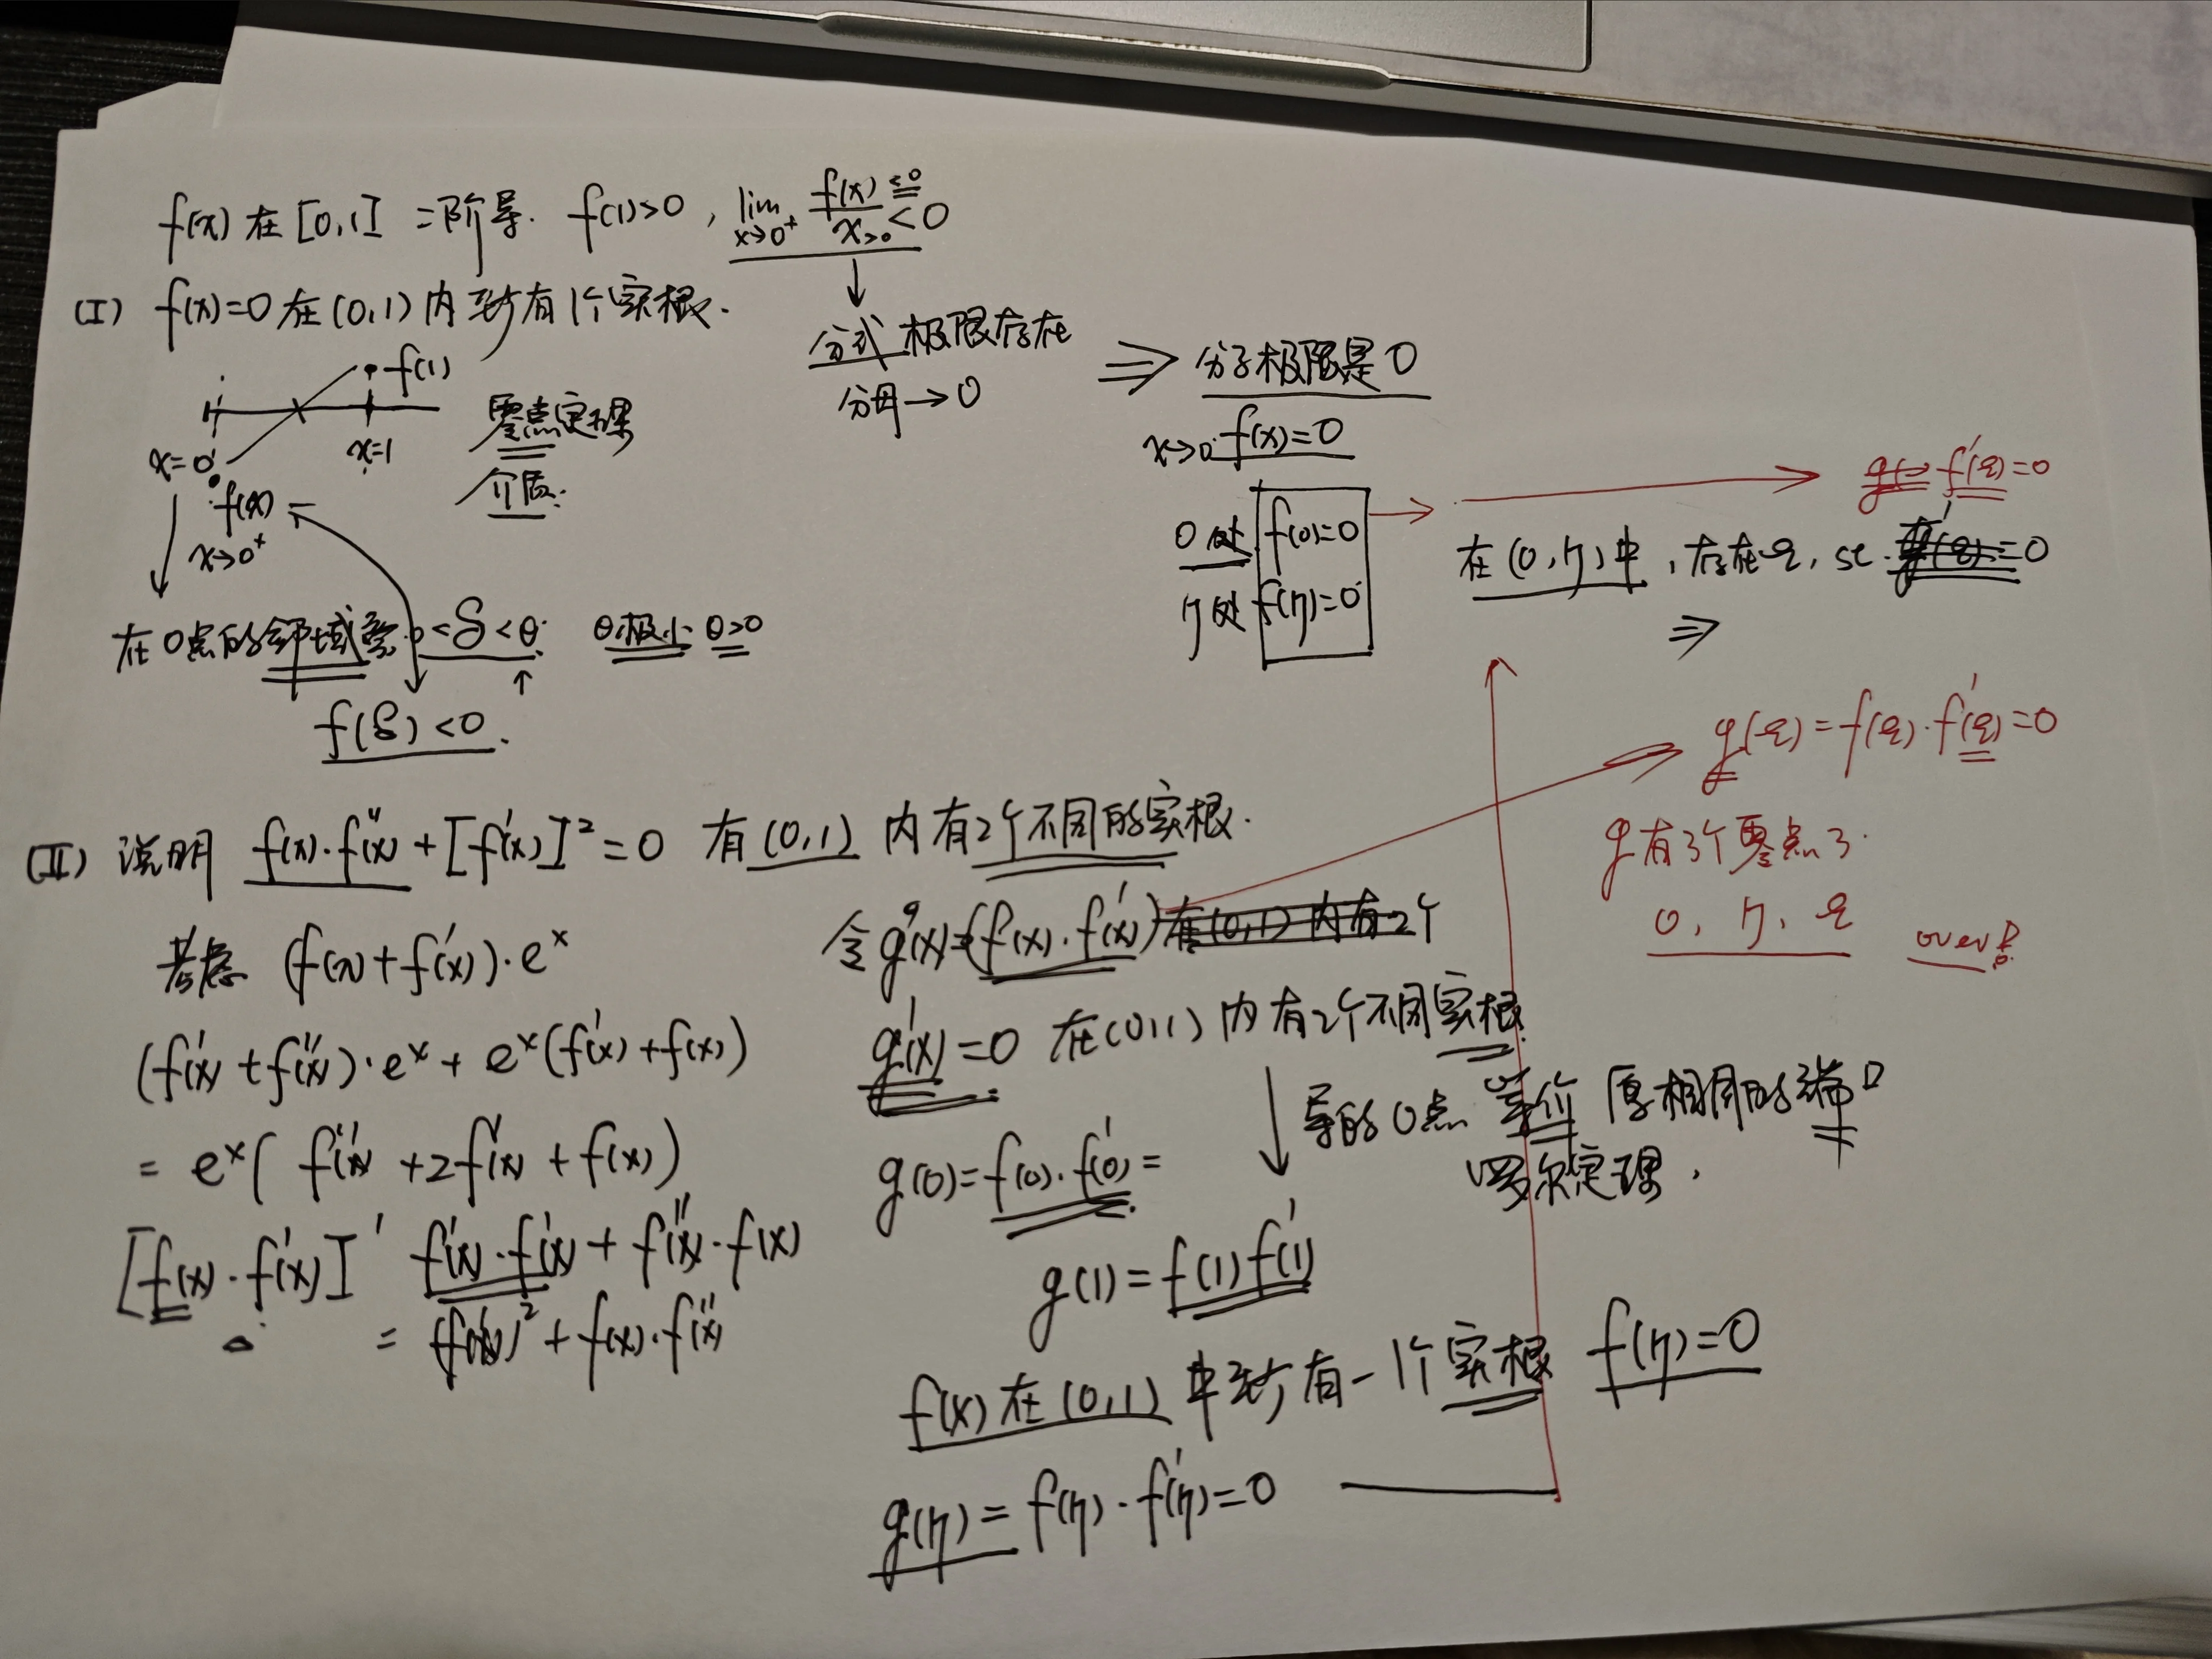 f(x) 在 [0,1] 二阶导. f(1)>0, lim x→0⁺ f(x)≤0 / x>0 <0
(I) f(x)=0 在 (0,1) 内至少有1个实根.
f(1)
x=0
x=1
零点定理
介值.
f(x)
x→0⁺
在0点的邻域
0<δ<θ.
θ极小 θ>0
f(δ)<0.
分式 极限存在
分母→0
⇒ 分子极限是0
x→0 f(x)=0
0处 f(0)=0
η处 f(η)=0
f'(ξ)=0
在(0,η)中, 存在ξ, st. =0
⇒
g(ξ)=f(ξ)·f'(ξ)=0
g有3个零点了.
0, η, ξ
over!
(II) 说明 f(x)·f''(x)+[f'(x)]²=0 有(0,1) 内有2个不同的实根.
考虑 (f(x)+f'(x))·eˣ
(f'(x)+f''(x))·eˣ+eˣ(f'(x)+f(x))
= eˣ( f''(x)+2f'(x)+f(x))
[f(x)·f'(x)]' f'(x)·f'(x)+f''(x)·f(x)
= (f'(x))²+f(x)·f''(x)
令 g(x)=(f(x)·f'(x)) 在(0,1) 内有2个
g'(x)=0 在(0,1) 内有2个不同实根
导的0点 等价 原相同的端口
罗尔定理.
g(0)=f(0)·f'(0)=
g(1)=f(1)f'(1)
f(x)在(0,1)中至少有一1个实根 f(η)=0
g(η)=f(η)·f'(η)=0